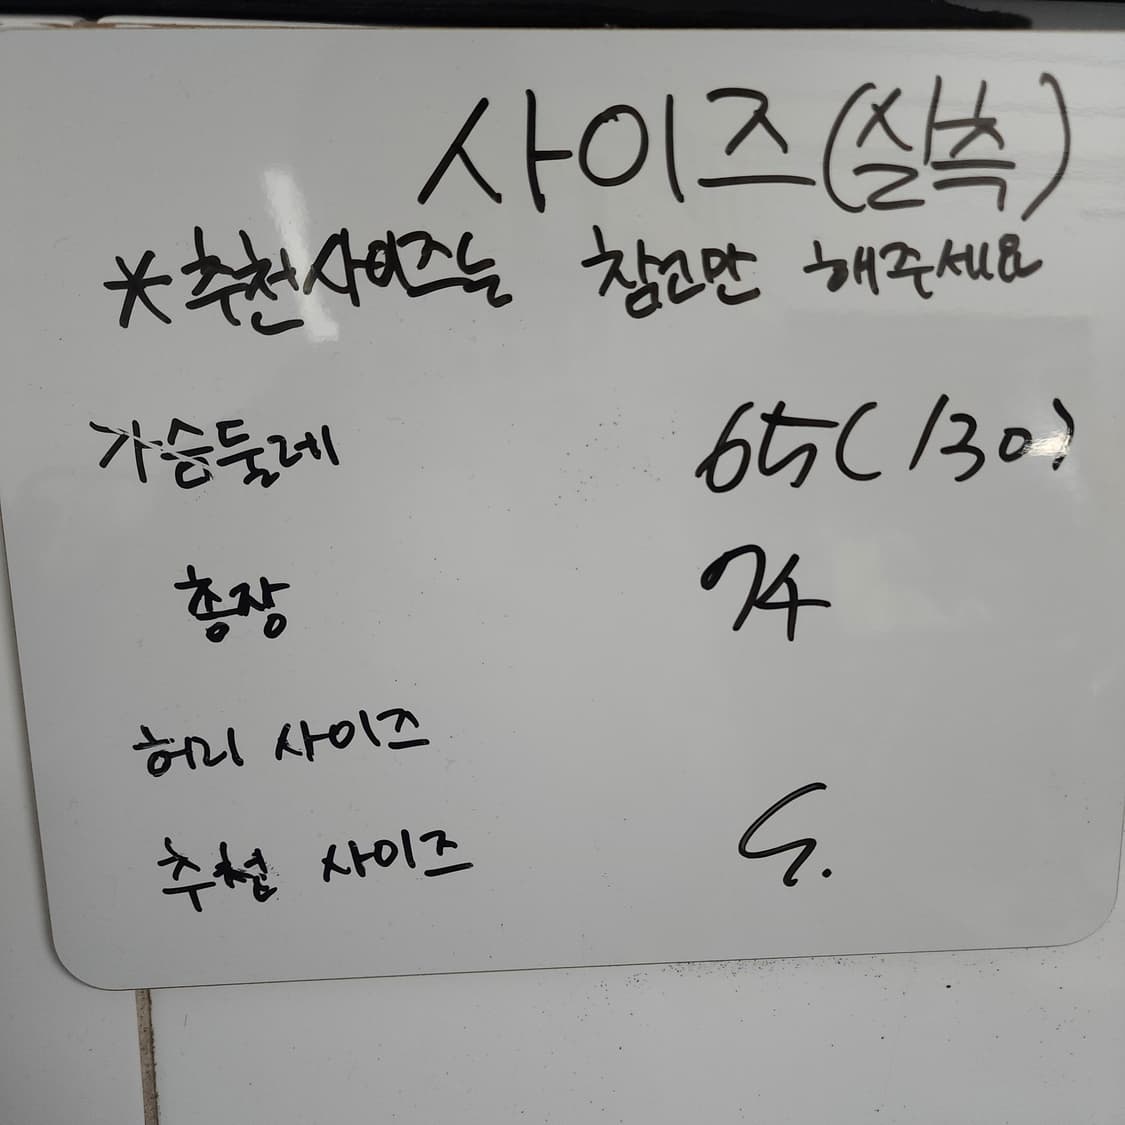 사이즈(실측)
*추천사이즈는 참고만 해주세요
가슴둘레 65(130)
총장 74
허리 사이즈
추천 사이즈 S.